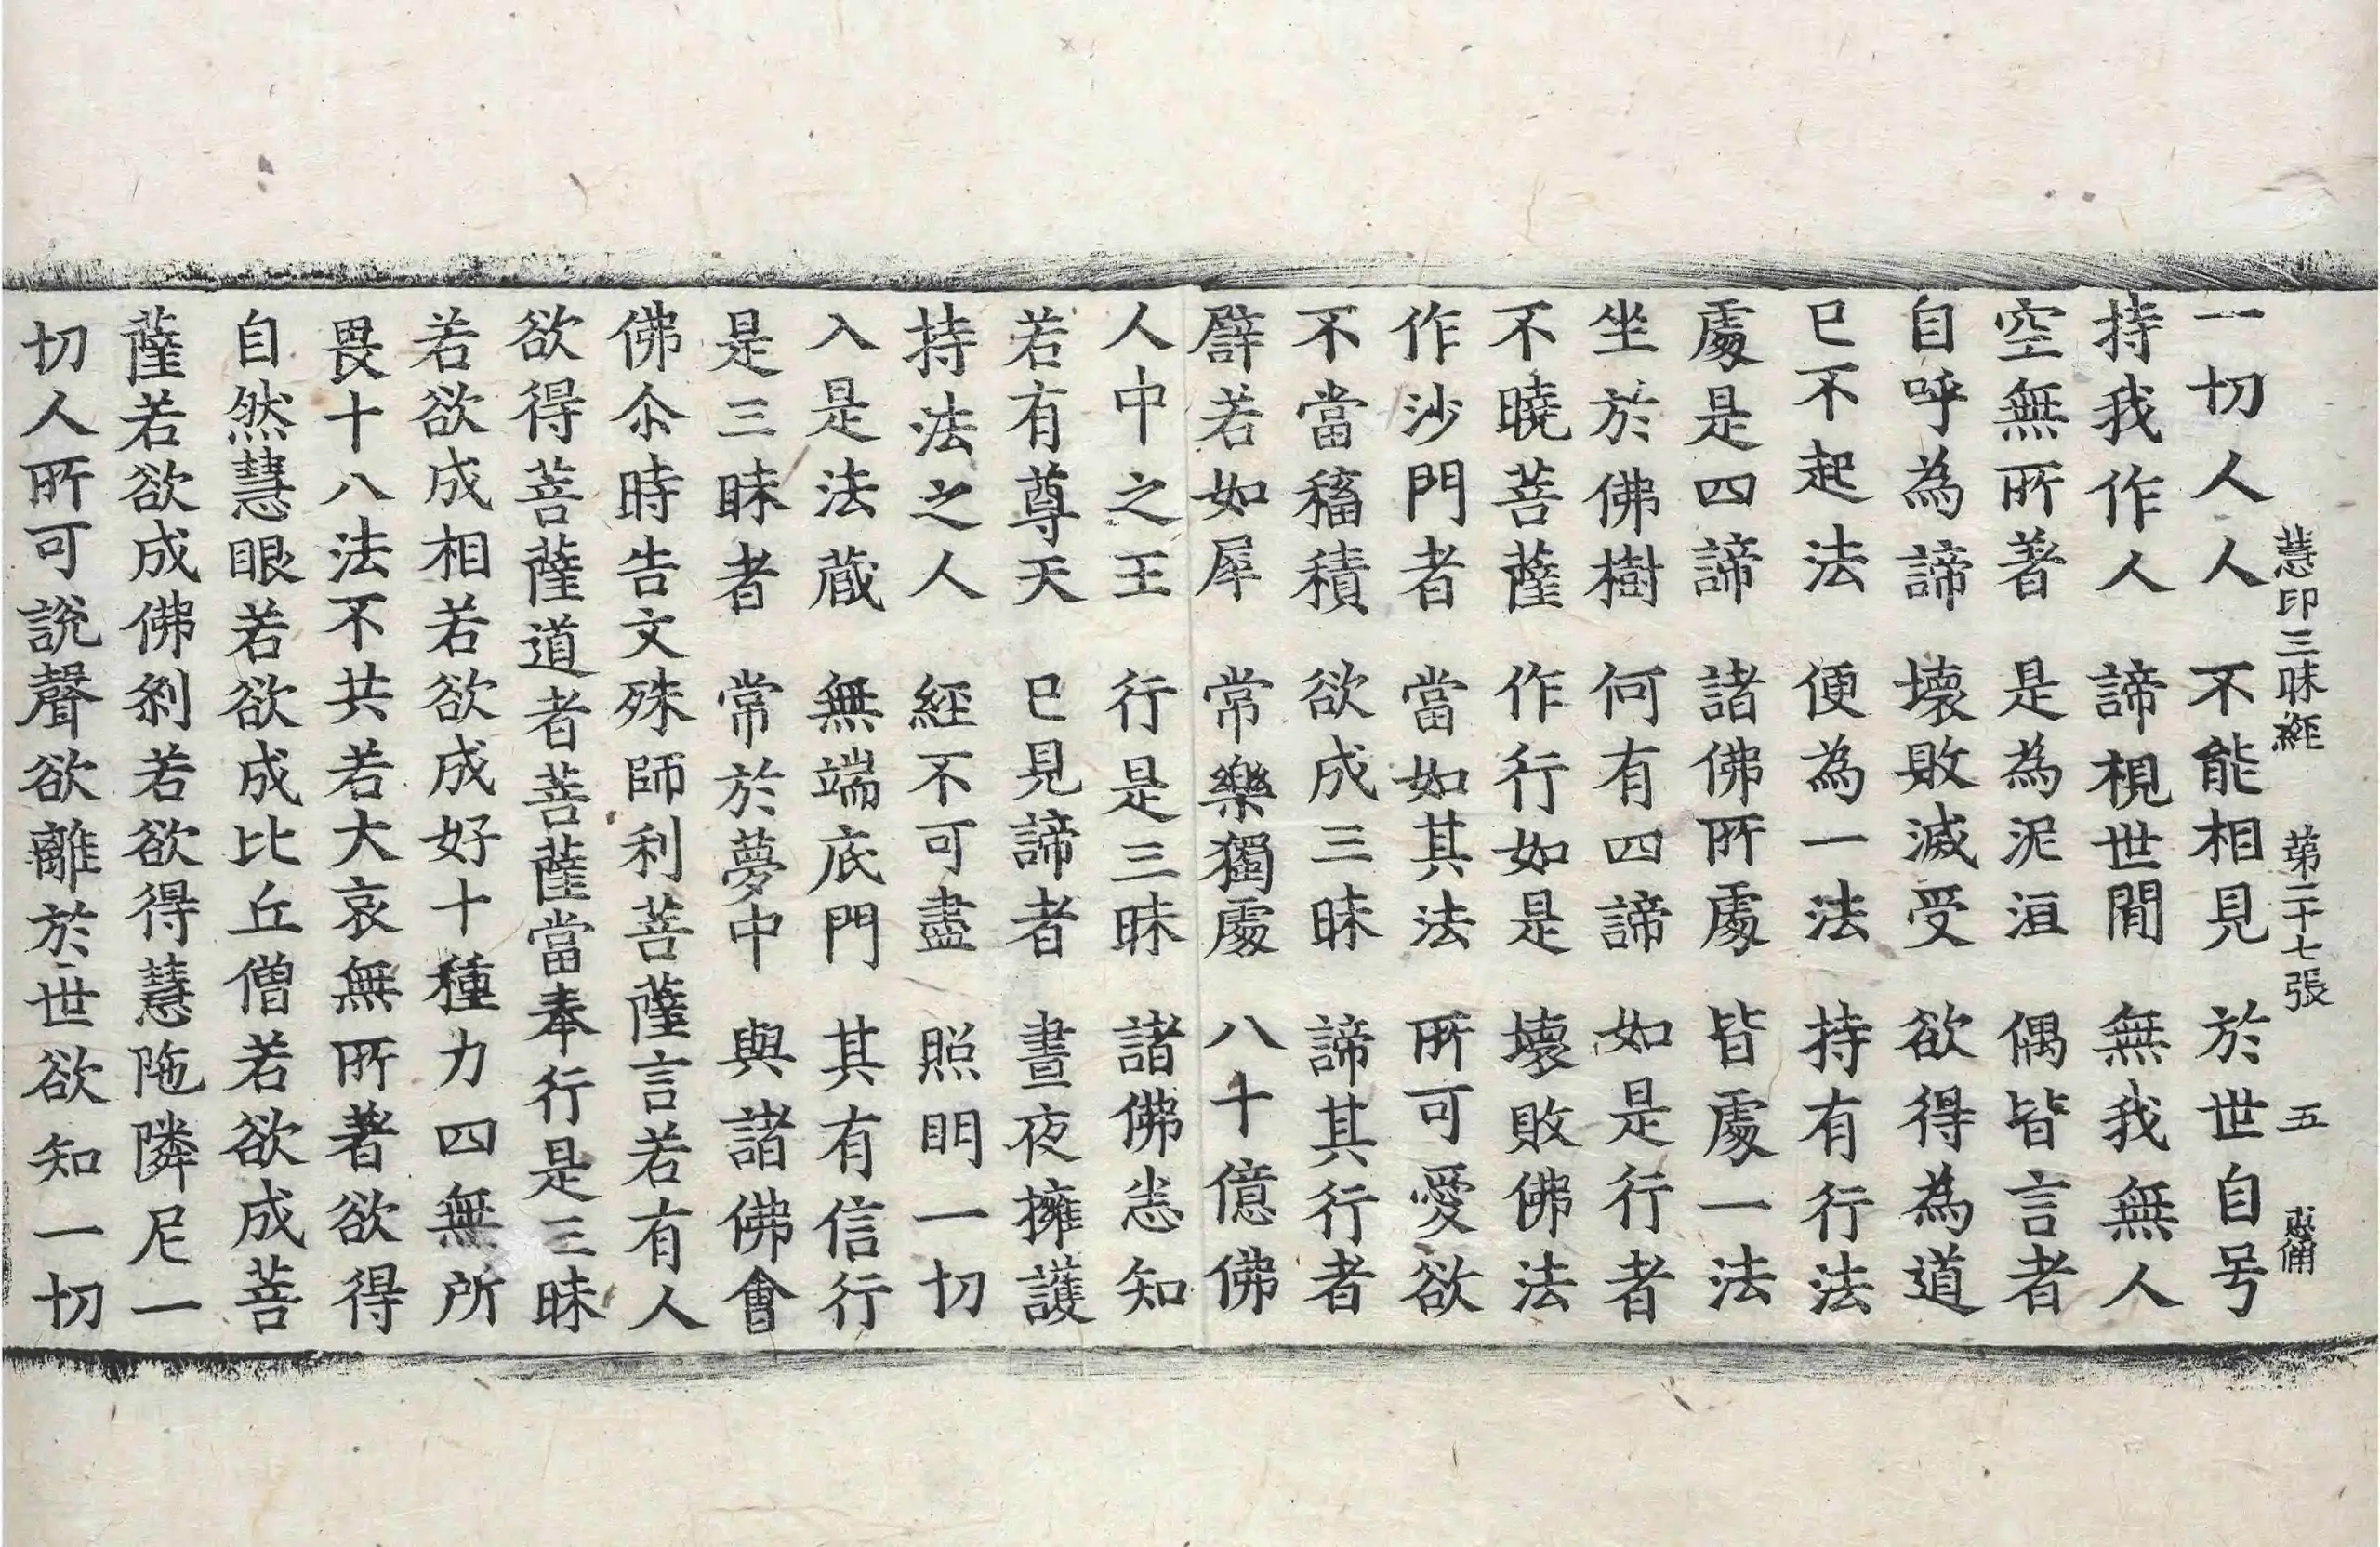 慧印三昧經 第二十七張 五 恭
一切人人人 不能相見 於世自号
持我作人 諦視世閒 無我無人
空無所著 是為泥洹 偶皆言者
自呼為諦 壞敗滅受 欲得為道
已不起法 便為一法 持有行法
處是四諦 諸佛所處 皆處一法
坐於佛樹 何有四諦 如是行者
不曉菩薩 作行如是 壞敗佛法
作沙門者 當如其法 所可愛欲
不當稸積 欲成三昧 諦其行者
譬若如犀 常樂獨處 八十億佛
人中之王 行是三昧 諸佛悉知
若有尊天 已見諦者 晝夜擁護
持法之人 經不可盡 照明一切
入是法蔵 無端底門 其有信行
是三昧者 常於夢中 與諸佛會
佛尒時告文殊師利菩薩言若有人
欲得菩薩道者菩薩當奉行是三昧
若欲成相若欲成好十種力四無所
畏十八法不共若大哀無所著欲得
自然慧眼若欲成比丘僧若欲成菩
薩若欲成佛剎若欲得慧陁隣尼一
切人所可說聲欲離於世欲知一切